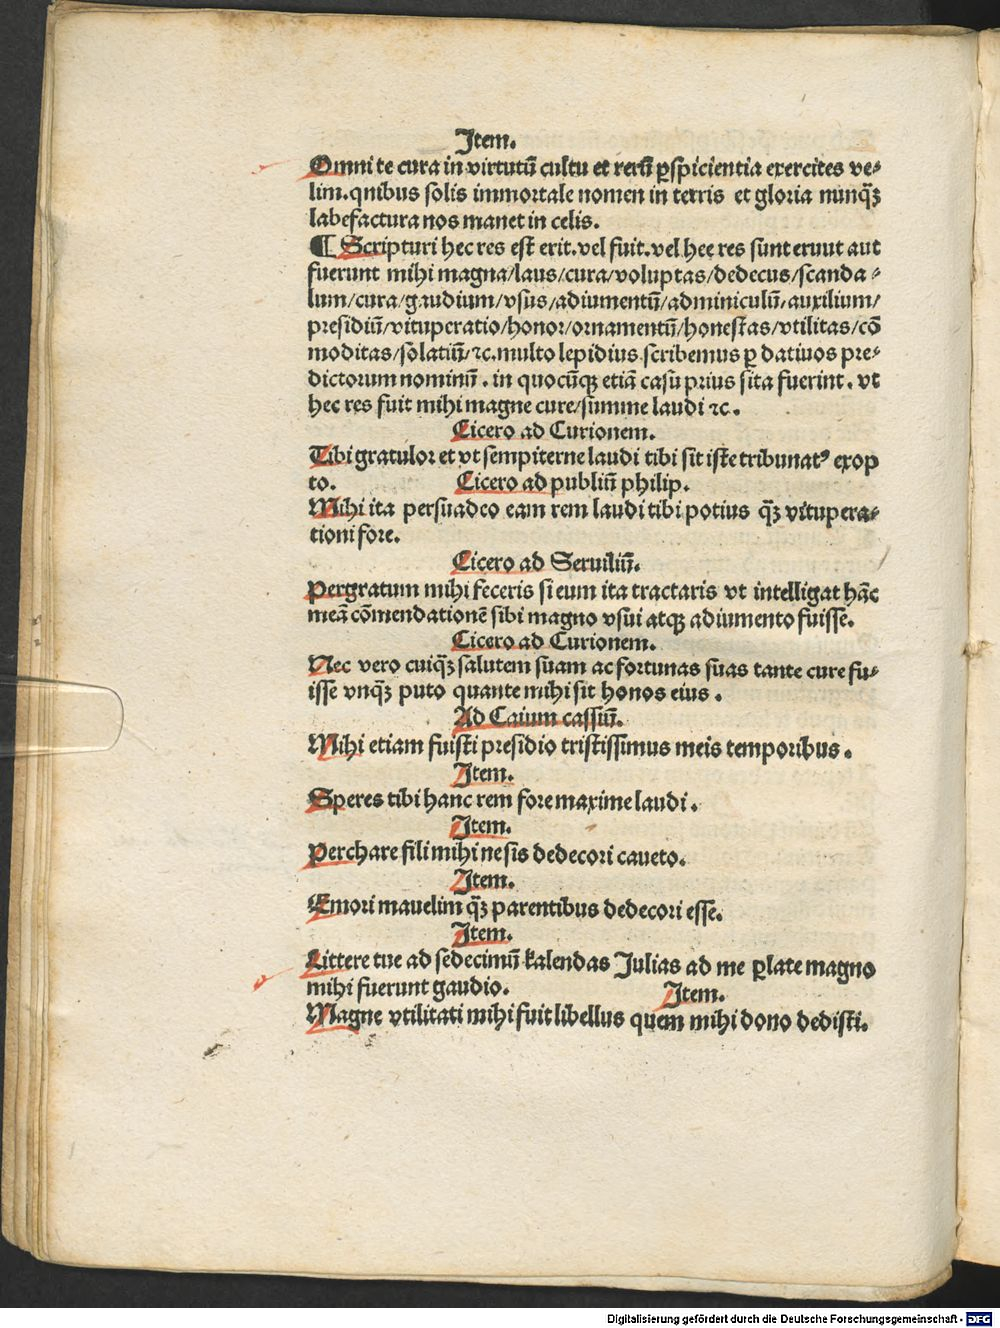 Item.
Omni te cura in virtutū cultu et rerū ꝑspicientia exercites ve⸗
lim. qnibus solis immortale nomen in terris et gloria nunqꝫ̄
labefactura nos manet in celis.
¶ Scripturi hec res est erit. vel fuit. vel hee res sunt eruut aut
fuerunt mihi magna/laus/cura/voluptas/dedecus/scanda⸗
lum/cura/gaudium/vsus/adiumentū/adminiculū/auxilium/
presidiū/vituperatio/honor/ornamentū/honestas/vtilitas/cō
moditas/solatiū/⁊c. multo lepidius scribemus ꝑ datiuos pre⸗
dictorum nominū. in quocūqꝫ etiā casu prius sita fuerint. vt
hec res fuit mihi magne cure/summe laudi ⁊c.
Cicero ad Curionem.
Tibi gratulor et vt sempiterne laudi tibi sit iste tribunatꝰ exop
to. Cicero ad publiū philip.
Mihi ita persuadeo eam rem laudi tibi potius qꝫ̄ vitupera⸗
tioni fore.
Cicero ad Seruiliū.
Pergratum mihi feceris si eum ita tractaris vt intelligat hāc
meā cōmendationē sibi magno vsui atqꝫ adiumento fuisse.
Cicero ad Curionem.
Nec vero cuiqꝫ̄ salutem suam ac fortunas suas tante cure fu⸗
isse vnqꝫ̄ puto quante mihi sit honos eius.
Ad Caium cassiū.
Mihi etiam fuisti presidio tristissimus meis temporibus.
Item.
Speres tibi hanc rem fore maxime laudi.
Item.
Perchare fili mihi ne sis dedecori caueto.
Item.
Emori mauelim qꝫ̄ parentibus dedecori esse.
Item.
Littere tue ad sedecimū kalendas Julias ad me ꝑlate magno
mihi fuerunt gaudio. Item.
Magne vtilitati mihi fuit libellus quem mihi dono dedisti.
Digitalisierung gefördert durch die Deutsche Forschungsgemeinschaft - DFG